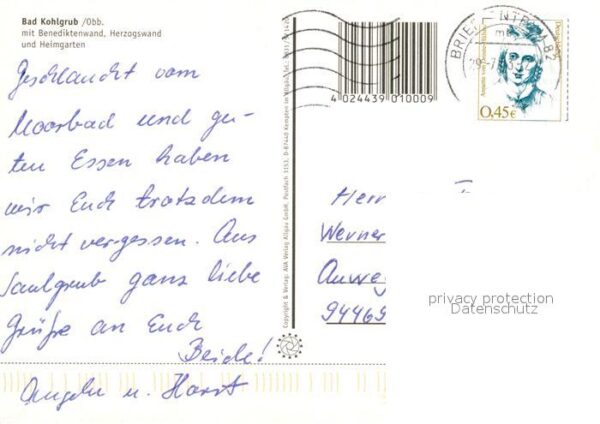 Bad Kohlgrub /Obb.
mit Benediktenwand, Herzogswand
und Heimgarten
Geschlaucht vom
Moorbad und gu-
ten Essen haben
wir Euch trotzdem
nicht vergessen. Aus
Saulgrub ganz liebe
Grüße an Euch
Beide!
Angela u. Horst
Copyright & Verlag: AVA Verlag Allgäu GmbH, Postfach 3153, D-87440 Kempten im Allgäu
4 024439 010009
BRIEFZENTRUM 82
0,45€
Herr
Werner
Auweg
94469
privacy protection
Datenschutz